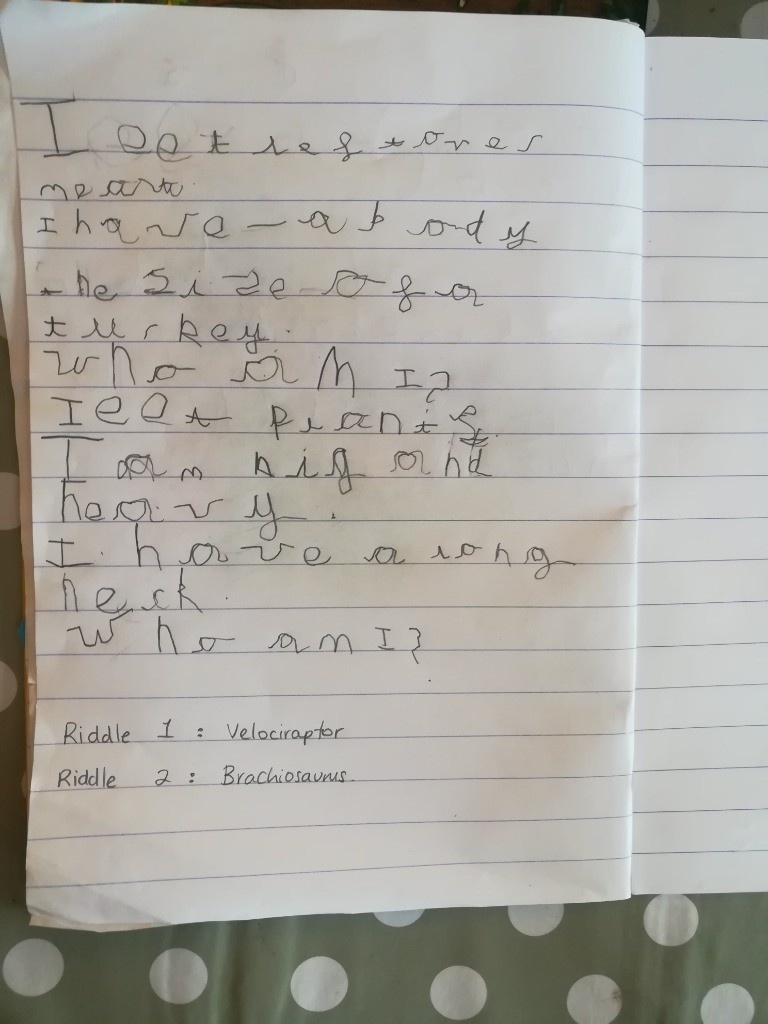 I eat lef tovers
meat
I have a body
the size of a
turkey.
Who am I?
I eat plants
I am big and
heavy.
I have a long
neck.
Who am I?
Riddle 1 : Velociraptor
Riddle 2 : Brachiosaurus.